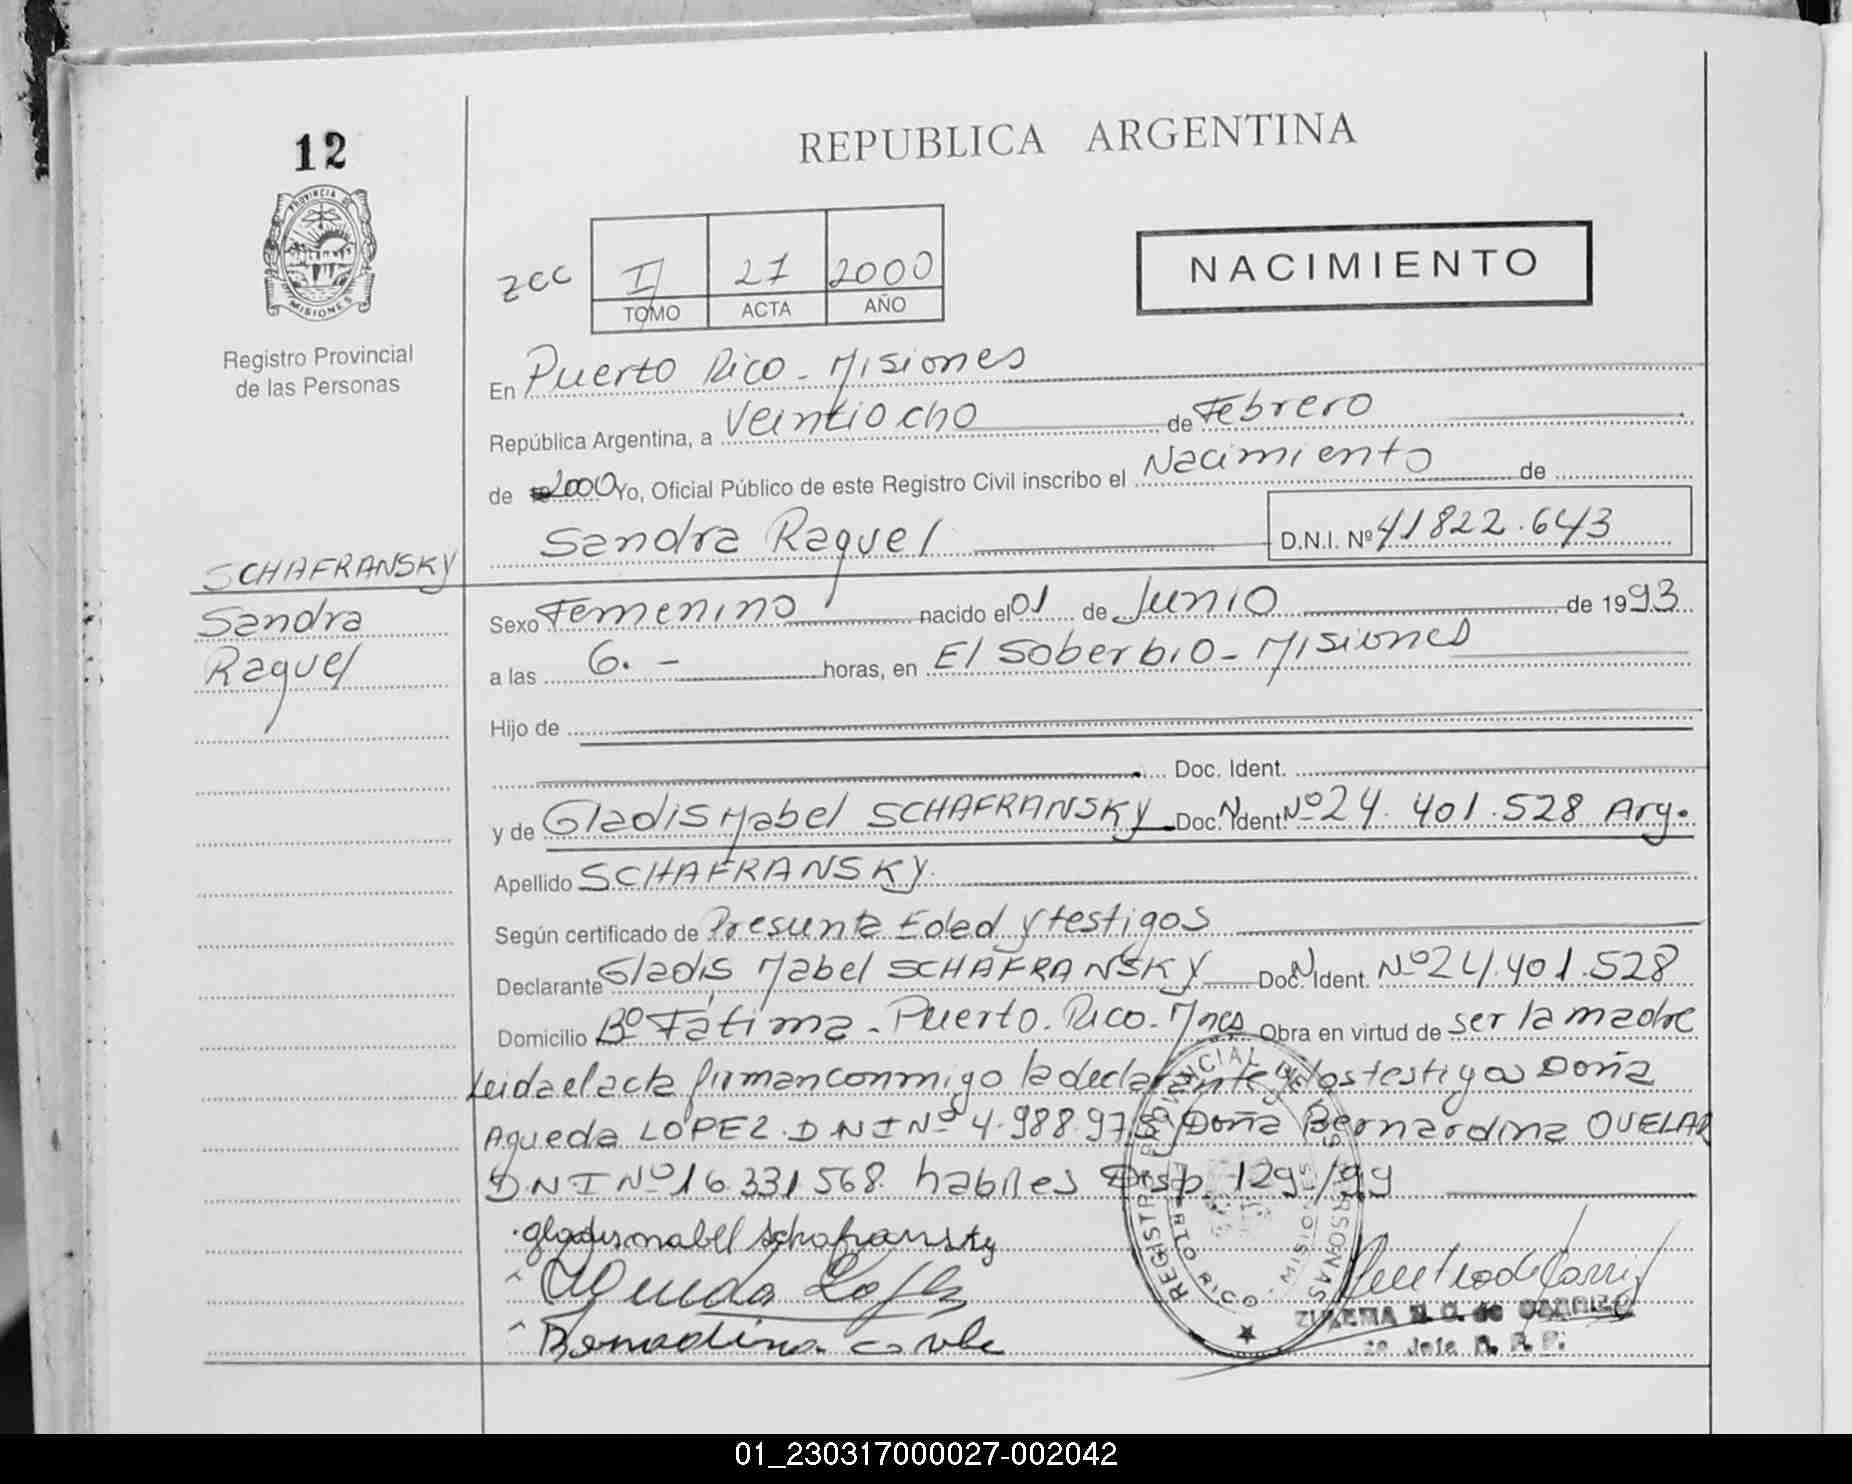 12
REPUBLICA ARGENTINA
PROVINCIA DE
MISIONES
Registro Provincial
de las Personas
zcc
I 27 2000
TOMO ACTA AÑO
NACIMIENTO
En Puerto Rico - Misiones
República Argentina, a Veintiocho de Febrero
de 2000 Yo, Oficial Público de este Registro Civil inscribo el Nacimiento de
Sandra Raquel D.N.I. Nº 41822.643
SCHAFRANSKY
Sandra
Raquel
Sexo Femenino nacido el 01 de Junio de 1993
a las 6. - horas, en El Soberbio - Misiones
Hijo de
Doc. Ident.
y de Gladis Mabel SCHAFRANSKY Doc. N Ident. Nº 24.401.528 Arg.
Apellido SCHAFRANSKY
Según certificado de Presunta Edad y testigos
Declarante Gladis Mabel SCHAFRANSKY Doc. N Ident. Nº 24.401.528
Domicilio Bº Fátima - Puerto Rico - Mnes Obra en virtud de ser la madre
Leida el acta firman conmigo la declarante y los testigos Doña
Agueda LOPEZ DNI Nº 4.988.975 Doña Bernardina OVELAR
DNI Nº 16.331.568 habiles Disp. 129/99
gladis mabel schafransky
Agueda Lopez
Bernadina
REGISTRO PROVINCIAL DE LAS PERSONAS
PUERTO RICO - MISIONES
de CARRIZO
Jefe R. P. P.
01_230317000027-002042